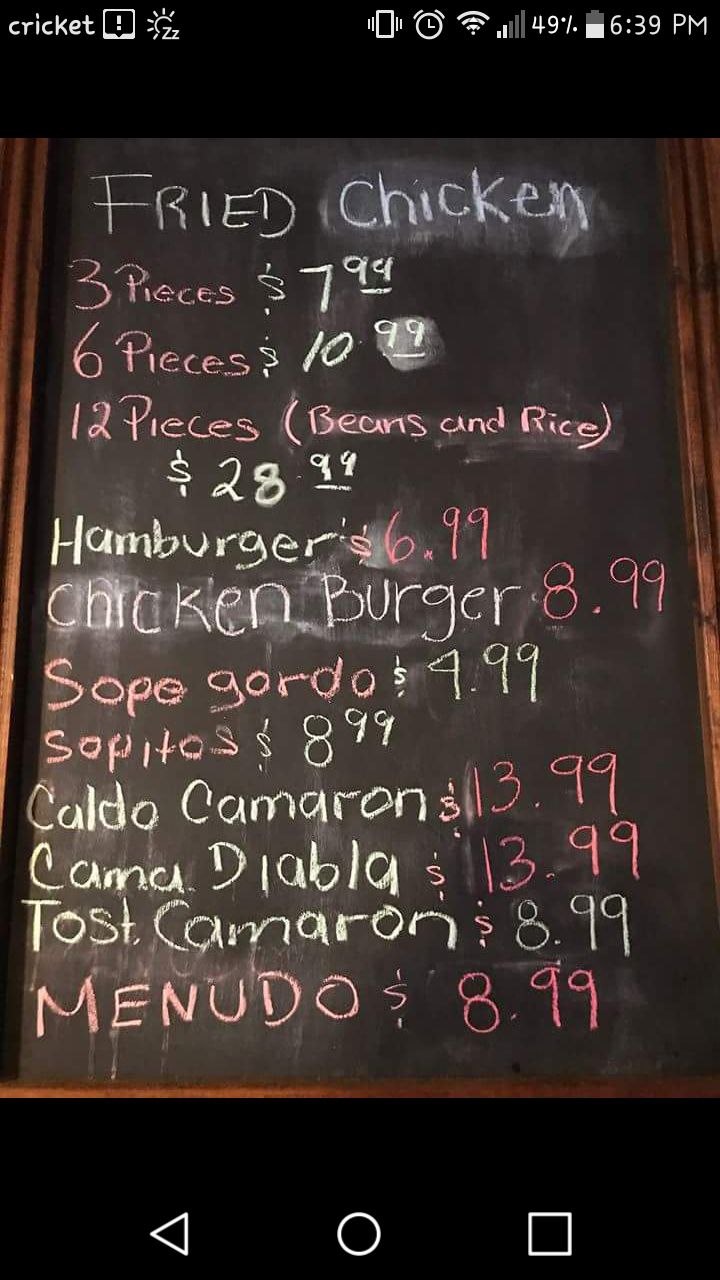 cricket 49% 6:39 PM
FRIED Chicken
3 Pieces $ 7 99
6 Pieces $ 10 99
12 Pieces (Beans and Rice)
$ 28.99
Hamburger's $ 6.99
Chicken Burger 8.99
Sope gordo $ 4.99
Sopitos $ 8 99
Caldo Camaron $ 13.99
Cama. Diabla $ 13.99
Tost. Camaron $ 8.99
MENUDO $ 8.99